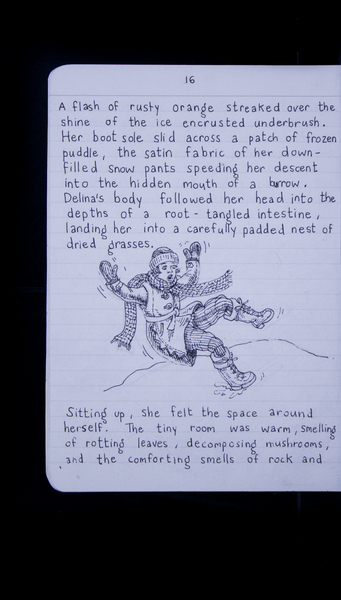 16
A flash of rusty orange streaked over the
shine of the ice encrusted underbrush.
Her boot sole slid across a patch of frozen
puddle, the satin fabric of her down-
filled snow pants speeding her descent
into the hidden mouth of a burrow.
Delina's body followed her head into the
depths of a root-tangled intestine,
landing her into a carefully padded nest of
dried grasses.
Sitting up, she felt the space around
herself. The tiny room was warm, smelling
of rotting leaves, decomposing mushrooms,
and the comforting smells of rock and